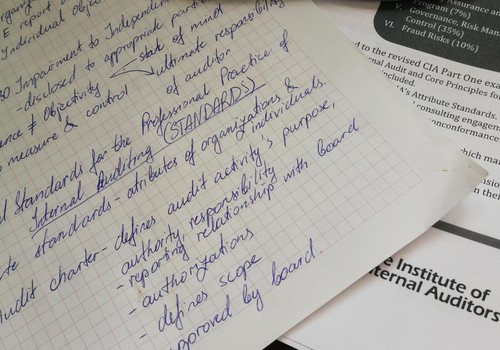 E report
Individual Objec
Impairment to Independen
- disclosed to appropriate part
ence ≠ Objectivity
state of mind
ultimate responsibility
measure & control
of auditor.
Standards for the Professional Practice of
Internal Auditing (STANDARDS)
standards - attributes of organizations &
individuals.
udit charter - defines audit activity's purpose,
authority, responsibility
- reporting relationship with board
- authorizations
- defines scope
pproved by board.
Assurance an
Program (7%)
V. Governance, Risk Mana
Control (35%)
VI. Fraud Risks (10%)
d to the revised CIA Part One exa
ernal Audit and Core Principles fo
included.
IA's Attribute Standards.
consulting engagem
nonconformance
which mar
e Institute of
ternal Auditors